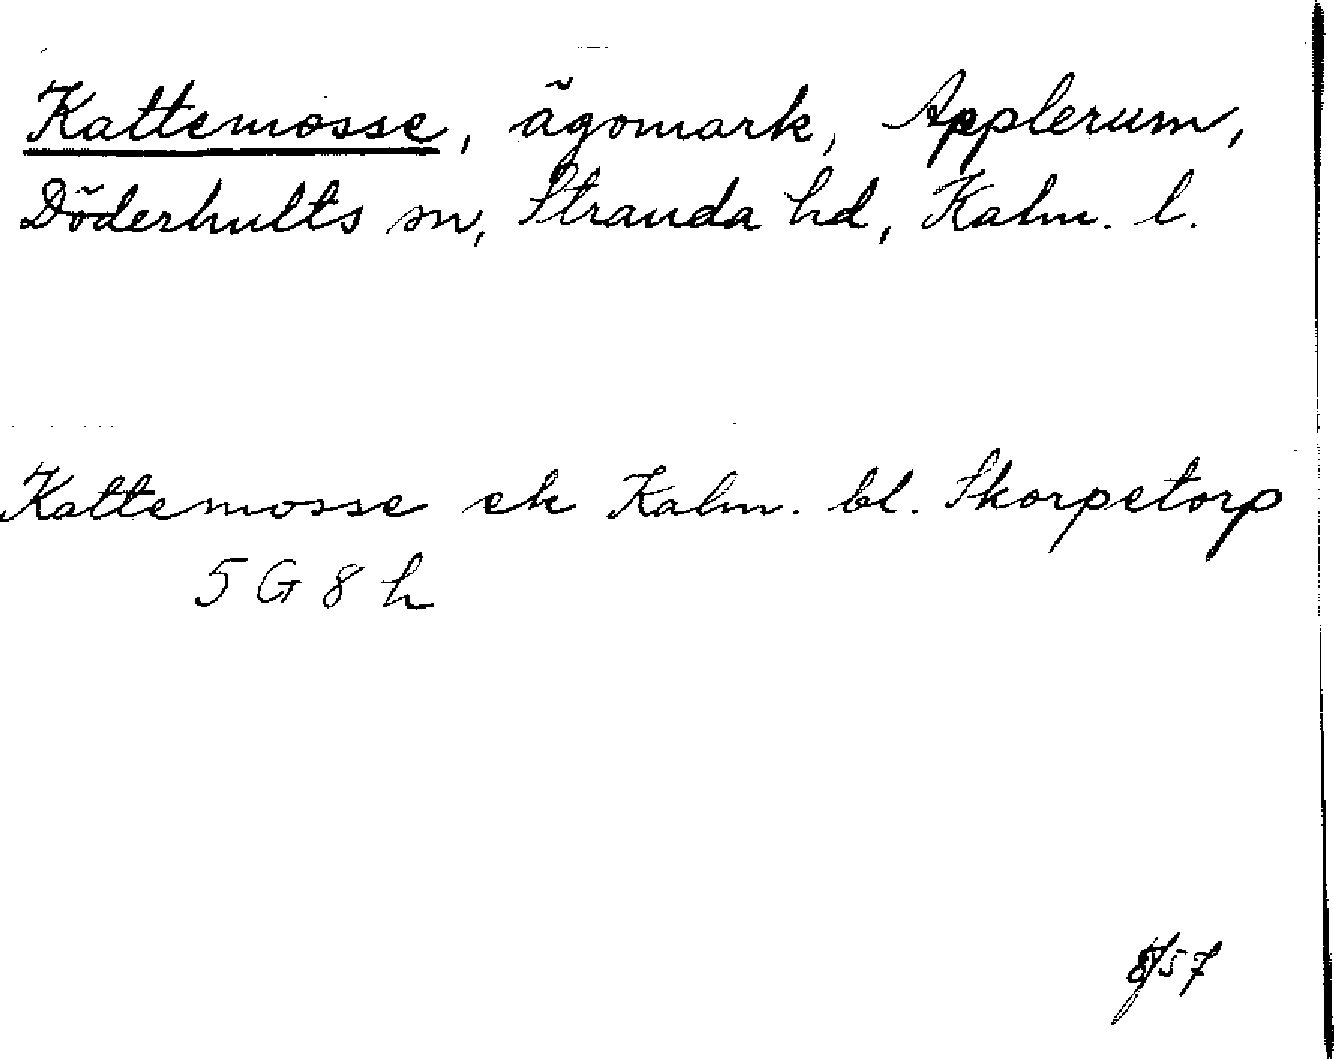 Kattemosse, ägomark, Applerum,
Döderhults sn, Stranda hd, Kalm. l.
Kattemosse ek Kalm. bl. Skorpetorp
5 G 8 h